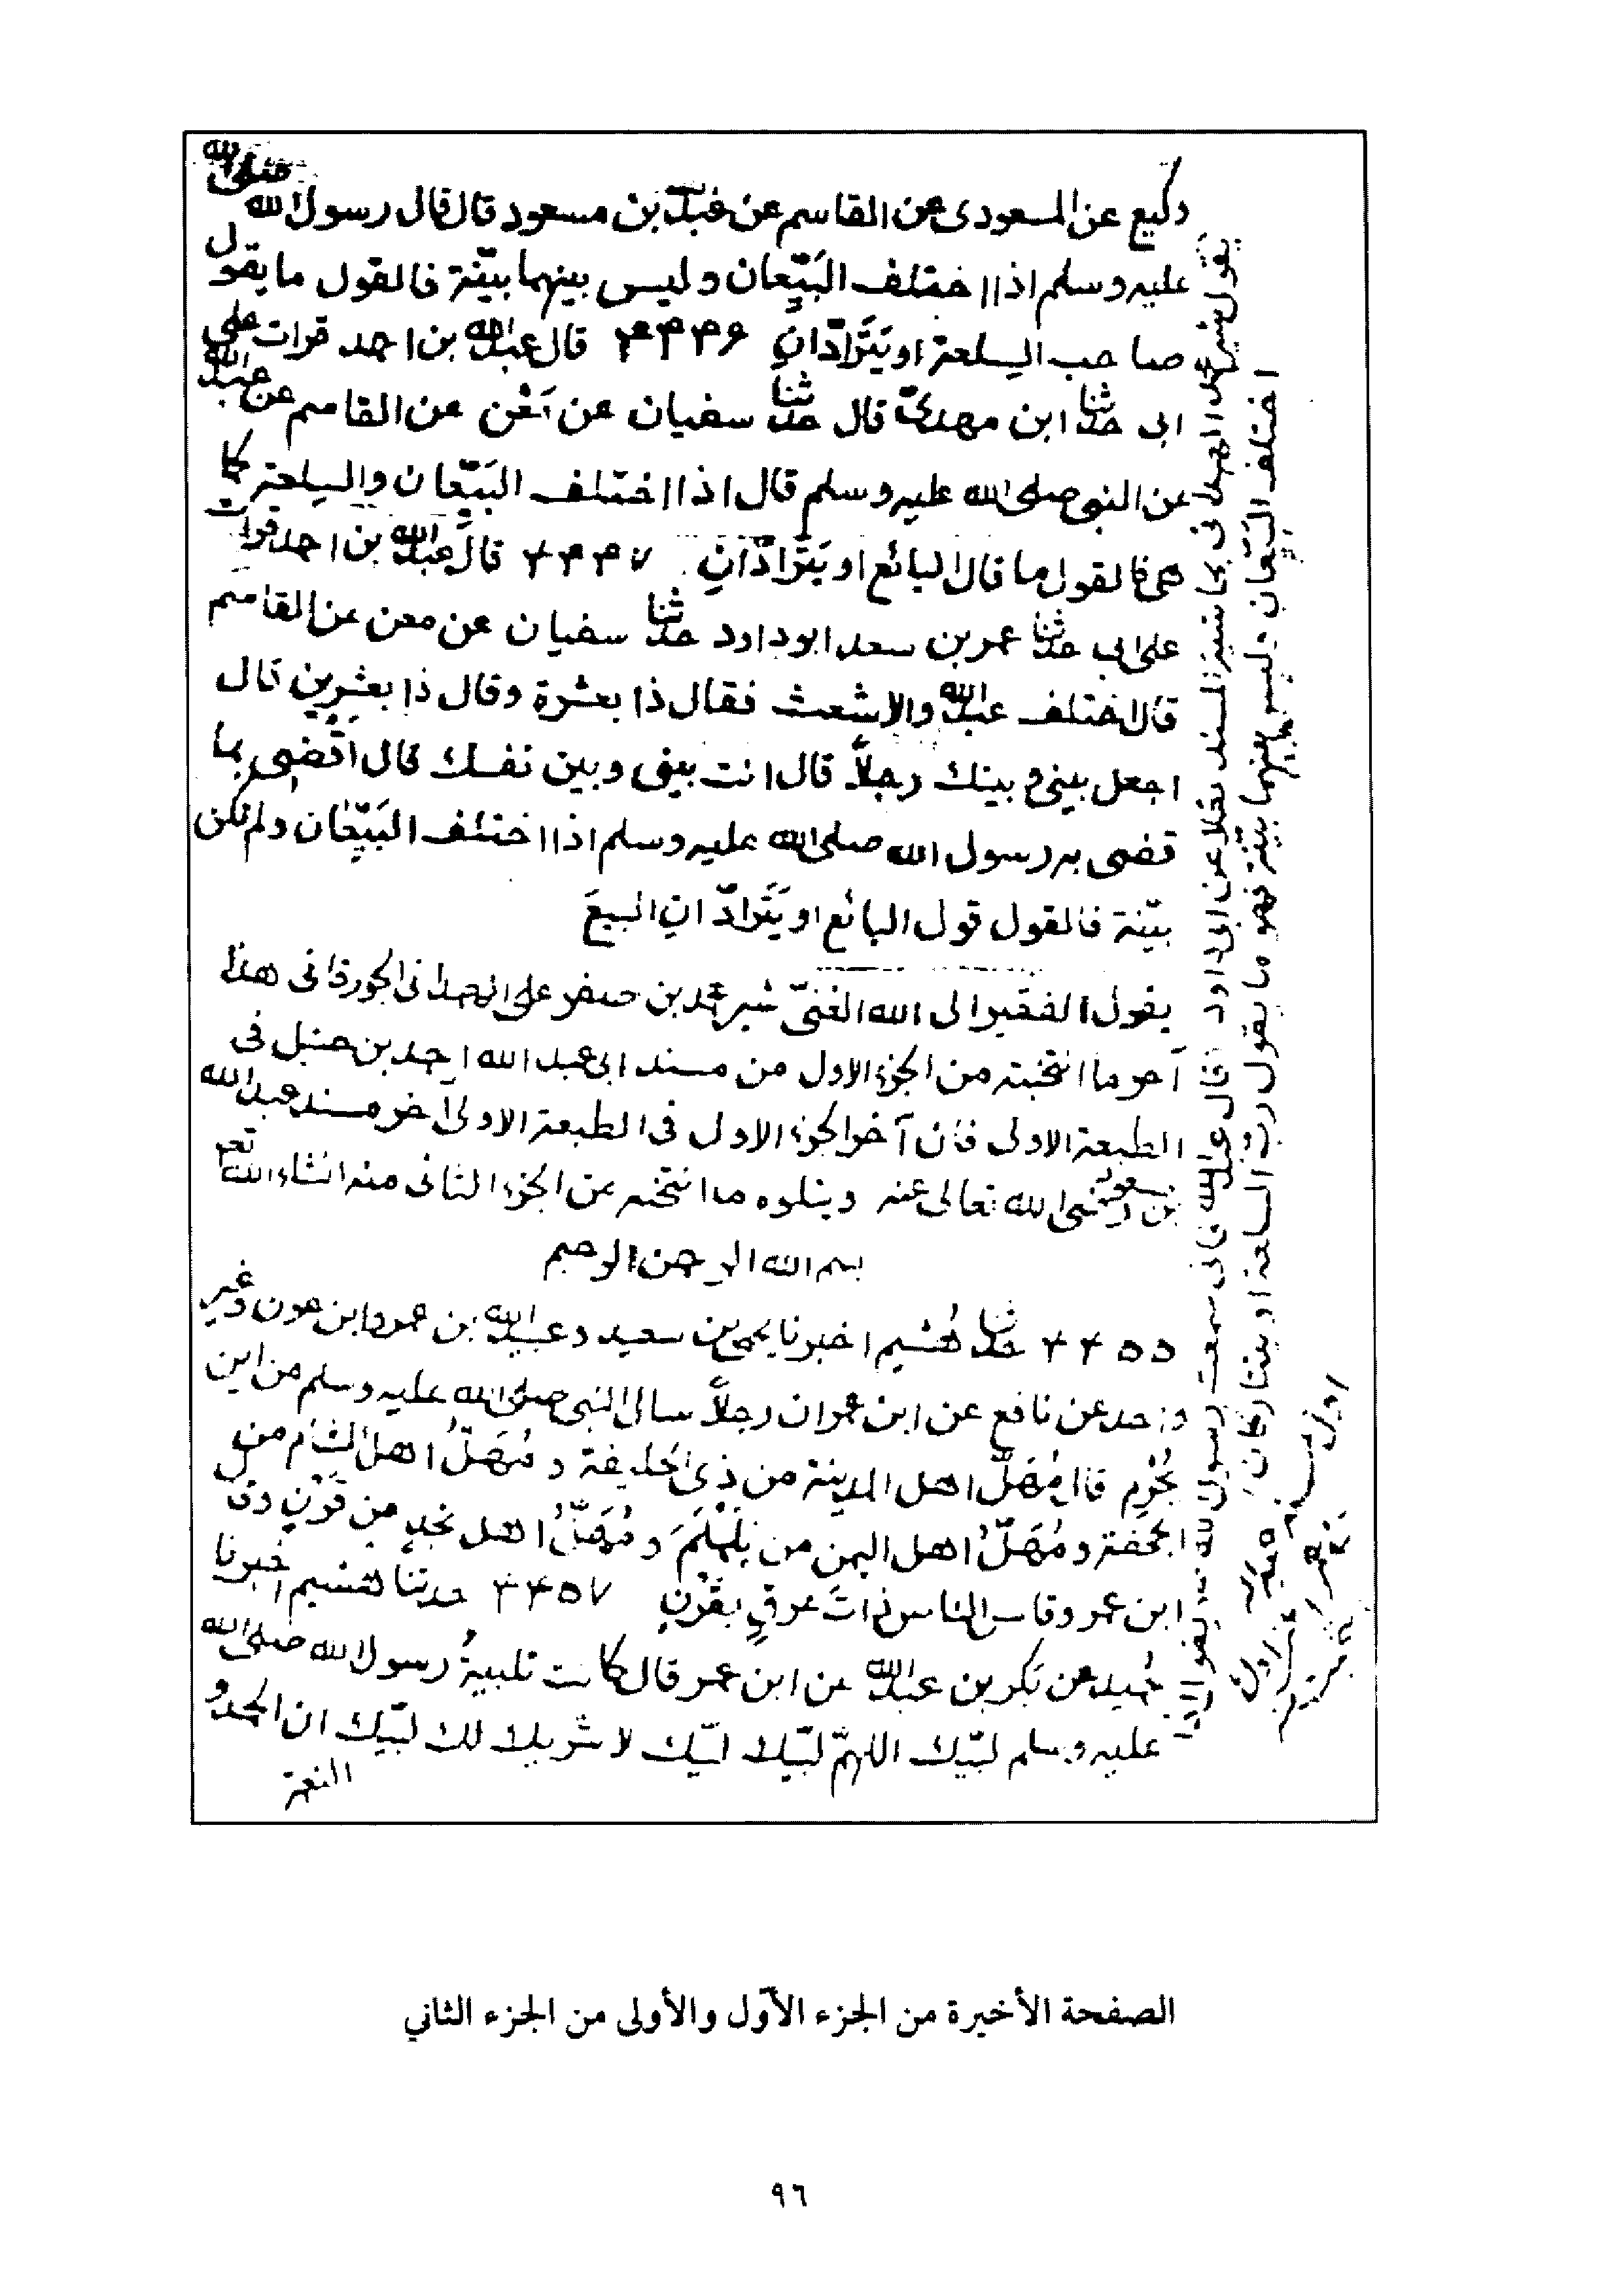 وكيع عن المسعودى عن القاسم عن عبد الله بن مسعود قال قال رسول الله صلى الله
عليه وسلم اذا اختلف البَيِّعان وليس بينهما بيّنة فالقول ما يقول
صاحب السلعة او يَتَرادّانِ ۴۴۴۶ قال عبد الله بن احمد قرات على
ابى حدثنا ابن مهدىّ قال حدثنا سفيان عن مَعْن عن القاسم عن عبد الله
عن النبى صلى الله عليه وسلم قال اذا اختلف البَيِّعان والسلعة كما
هى فالقول ما قال البائع او يَتَرادّانِ ۴۴۴۷ قال عبد الله بن احمد قرات
على ابى حدثنا عمر بن سعد ابو داود حدثنا سفيان عن معن عن القاسم
قال اختلف عبد الله والاشعث فقال ذا بعشرة وقال ذا بعشرين قال
اجعل بينى وبينك رجلاً قال انت بينى وبين نفسك قال اَقْضى بما
قضى به رسول الله صلى الله عليه وسلم اذا اختلف البَيِّعان ولم تكن
بيّنة فالقول قول البائع او يَتَرادّانِ البيعَ
يقول الفقير الى الله الغنىّ شير محمد بن صفر على الهمدانى الجورقانى هذا
آخر ما انتخبته من الجزء الاول من مسند ابى عبد الله احمد بن حنبل فى
الطبعة الاولى فان آخر الجزء الاول فى الطبعة الاولى آخر مسند عبد الله
بن مسعود رضى الله تعالى عنه ويتلوه ما انتخبته من الجزء الثانى منه انشاء الله تعم
بسم الله الرحمن الرحيم
۴۴۵۵ حدثنا هُشَيم اخبرنا يحيى بن سعيد وعبيد الله بن عمر وابن عون وغير
واحد عن نافع عن ابن عمر ان رجلاً سال النبى صلى الله عليه وسلم من اين
يُحْرِم قال مُهَلُّ اهل المدينة من ذى الحُليفة ومُهَلُّ اهل الشام من
الجحفة ومُهَلُّ اهل اليمن من يَلَمْلَمَ ومُهَلُّ اهل نجدٍ من قَرْنٍ وقال
ابن عمر وقاس الناس ذاتَ عرقٍ بقَرْنٍ ۴۴۵۷ حدثنا هشيم اخبرنا
حُميد عن بَكر بن عبد الله عن ابن عمر قال كانت تلبيةُ رسول الله صلى الله
عليه وسلم لبّيك اللهمّ لبّيك لبّيك لا شريك لك لبّيك ان الحمد و
النعمة
يقول شير محمد الهمدانى بحاشية المسند نقلا عن ابى داود قال عبد الله فانى سمعت رسول الله يقول اذا
اختلف البَيِّعان وليس بينهما بيّنة فهو ما يقول ربّ السلعة او يتتاركان
الصفحة الأخيرة من الجزء الأوّل والأولى من الجزء الثاني
٩٦